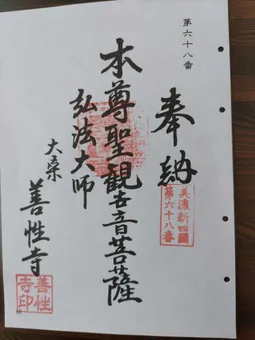 第六十八番
奉納
美濃新四國
第六十八番
本尊聖観世音菩薩
弘法大師
大桑
善性寺
善性
寺印